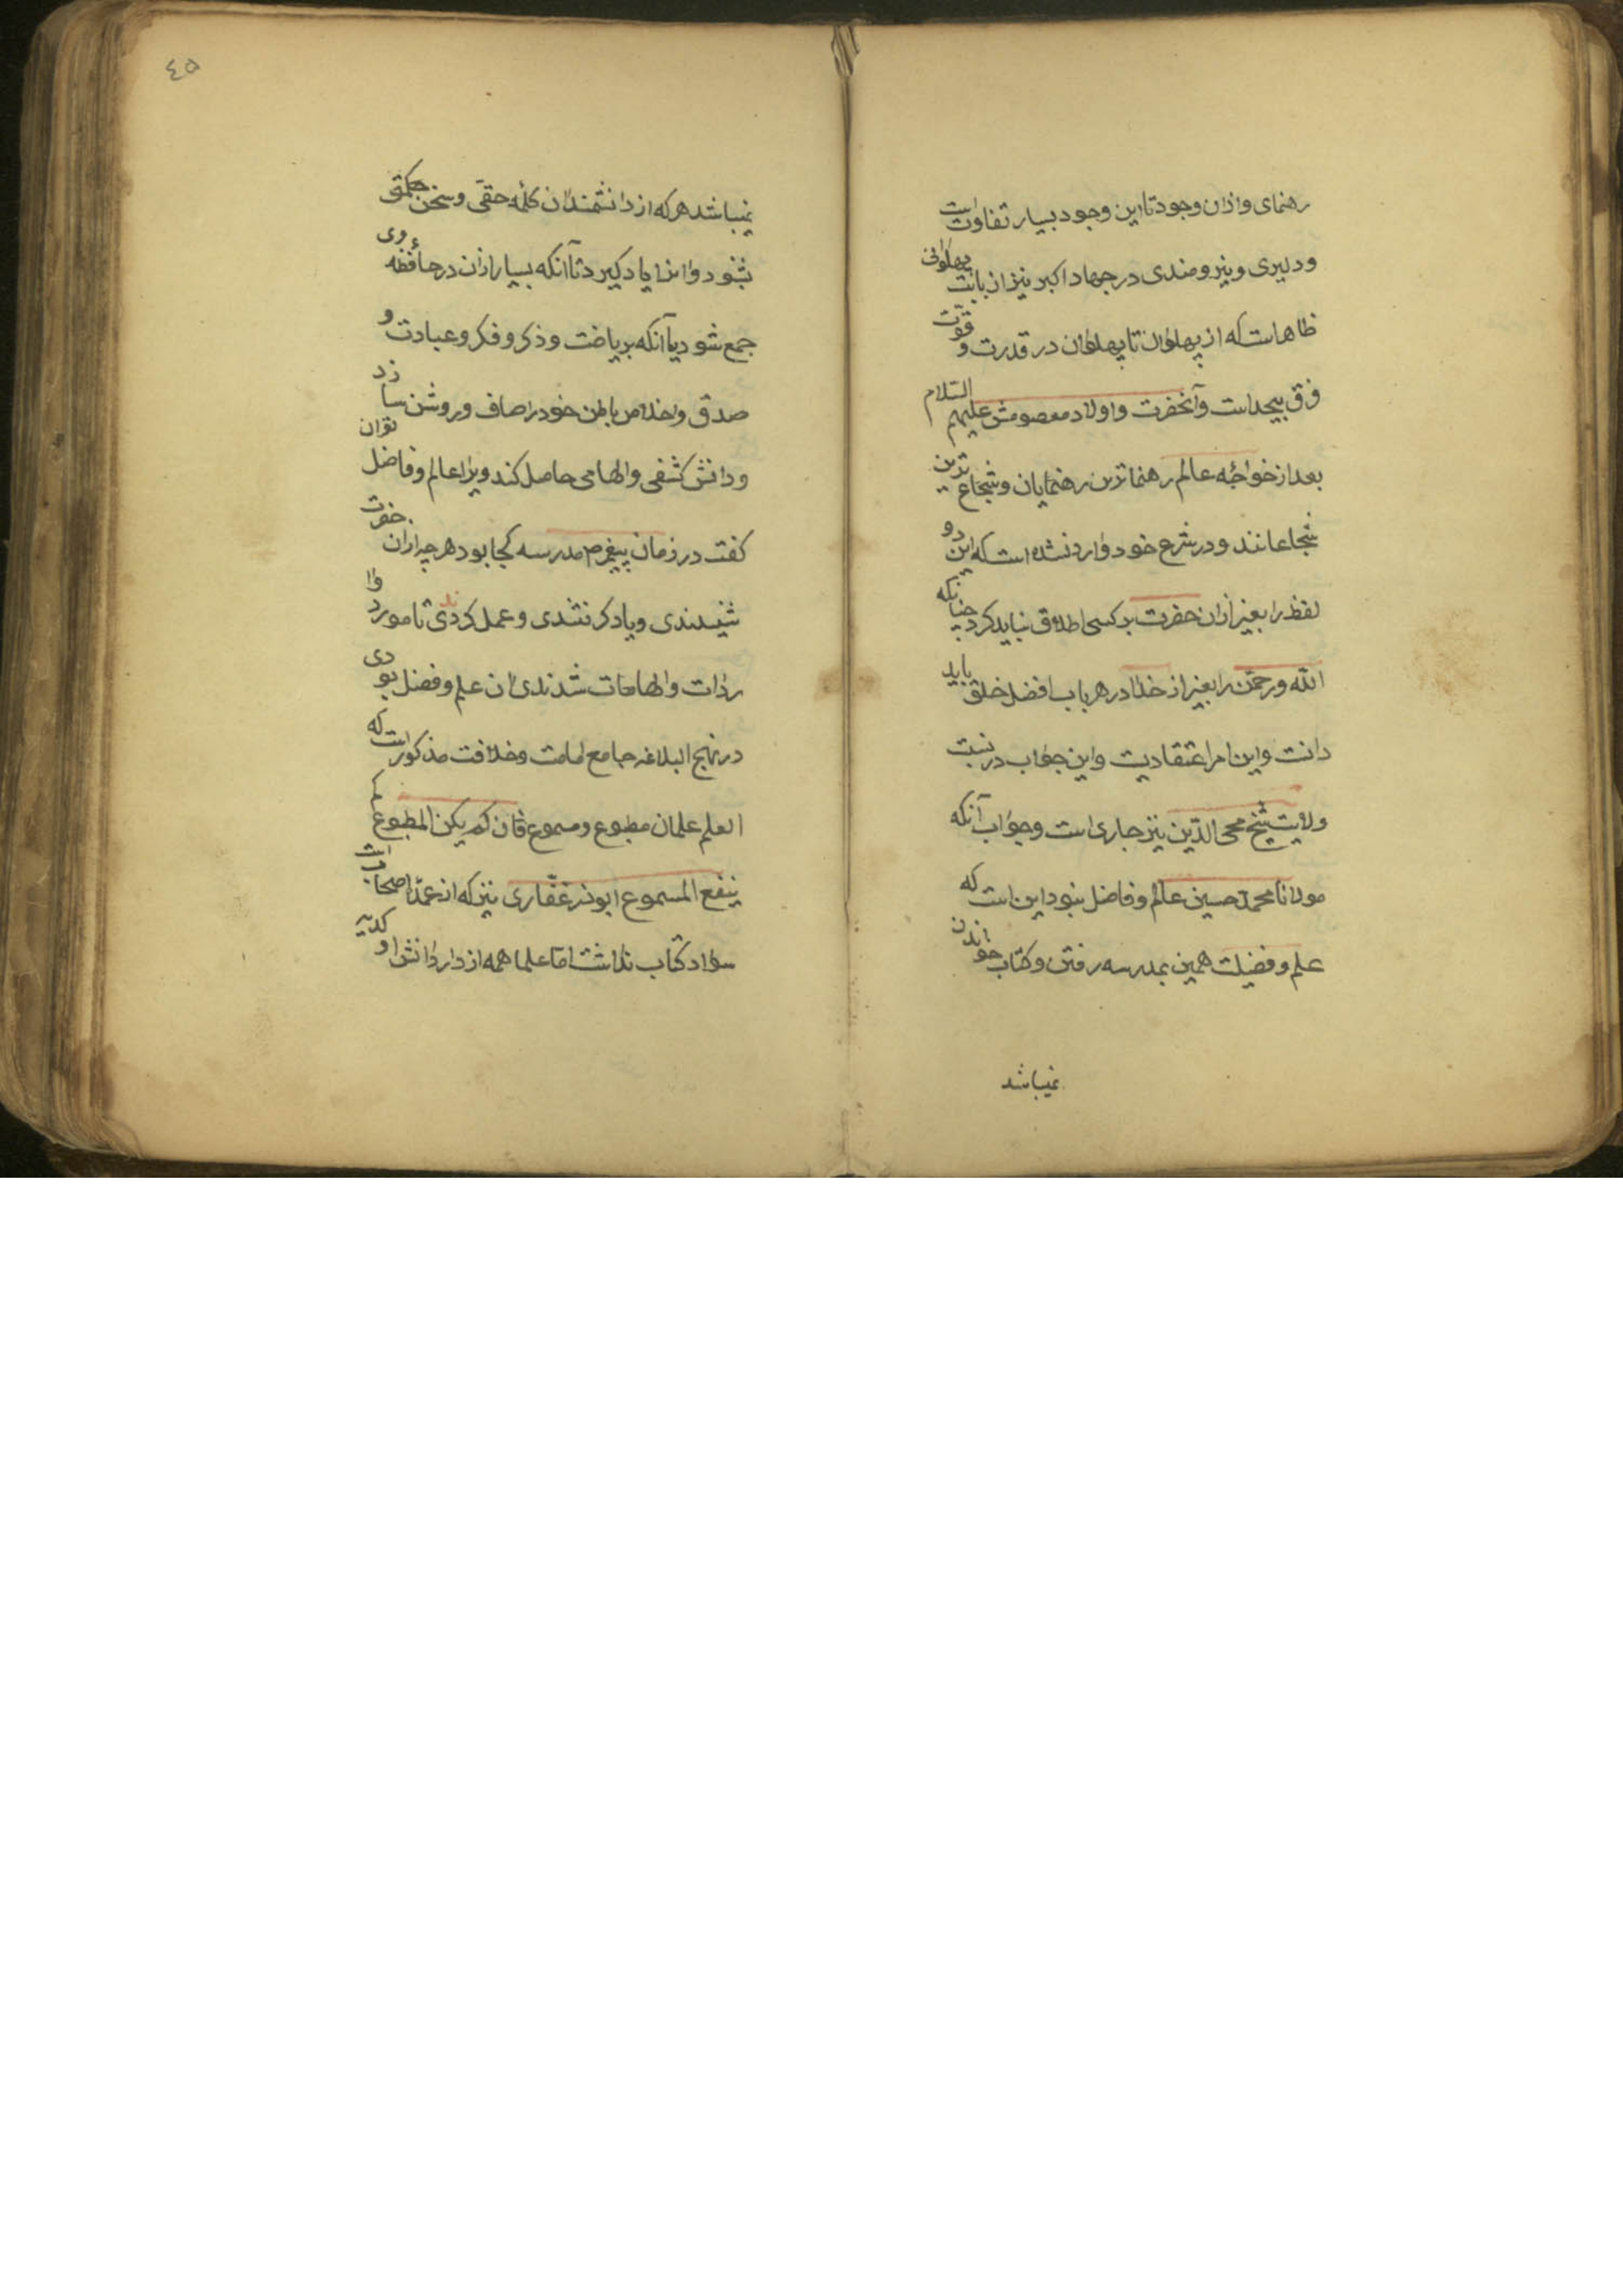 رهنمای و ازان وجود تا این وجود بسیار تفاوت است
و دلیری و نیرومندی در جهاد اکبر نیز از بابت پهلوانی
ظاهر است که از پهلوان تا پهلوان در قدرت و قوّت
فرق بیحد است و آنحضرت و اولاد معصومش علیهم السّلام
بعد از خواجهٔ عالم رهنما ترین رهنمایان و شجاع ترین
شجاعانند و در شرع خود وارد نشده است که این دو
لفظ را بغیر ازان حضرت بر کسی اطلاق نباید کرد چنانکه
الله و رحمن را بغیر از خدا در هر باب افضل خلق باید
دانست و این امر اعتقادیت و این جواب در نسبت
ولایت شیخ محی الدّین نیز جاری است و جواب آنکه
مولانا محمد حسین عالم و فاضل نبود این است که
علم و فضیلت همین بمدرسه رفتن و کتاب خواندن
نمیباشد
٤٥
نمیباشد هر که از دانشمندان کلمهٔ حقّی و سخن حکمتی
بشنود و انرا یاد کیرد تا آنکه بسیار ازان در حافظهٔ وی
جمع شود یا آنکه بریاضت و ذکر و فکر و عبادت و
صدق و اخلاص باطن خود را صاف و روشن سازد
و دانش کشفی و الهامی حاصل کند ویرا عالم و فاضل توان
کفت در زمان پیغمبرم مدرسه کجا بود هر چه ازان حضرت
شنیدندی و یاد کرفتندی و عمل کردندی تا مورد وا
ردات و الهامات شدندی ان علم و فضل بودی
در نهج البلاغه جامع امامت و خلافت مذکور است که
العلم علمان مطبوع و مسموع فان لم یکن المطبوع لم
ینفع المسموع ابوذر غفّاری نیز که از عمدهٔ اصحاب است
سواد کتاب نداشت امّا علما همه از دار دانش او کدیه